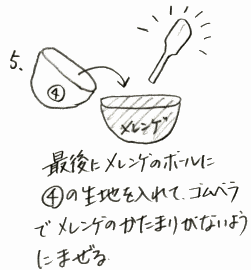 5、
④
メレンゲ
最後にメレンゲのボールに
④の生地を入れて、ゴムベラ
でメレンゲのかたまりがないよう
にまぜる